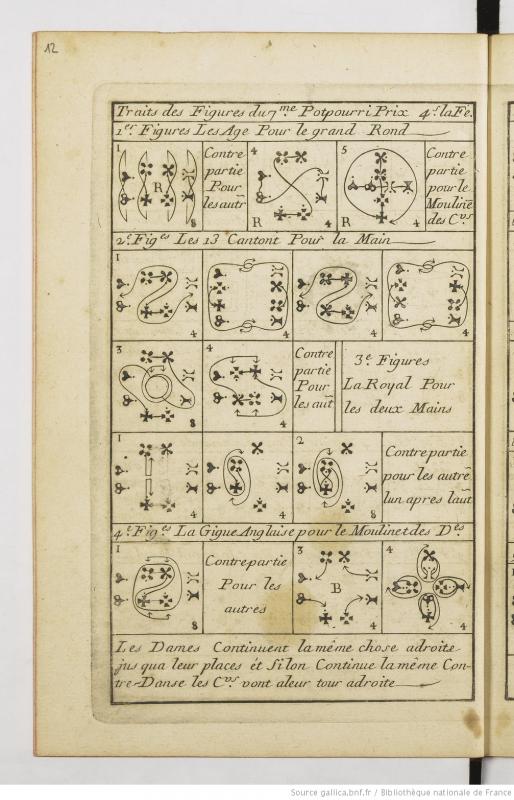 12
Traits des Figures du 7.me Potpourri Prix 4.s la Fe.
1.es Figures Les Age Pour le grand Rond
1
R
8
Contre
partie
Pour
les autr
4
R
4
5
R
4
Contre
partie
pour le
Moulinē
des C.vs
2.e Fig.es Les 13 Cantont Pour la Main
1
4
4
4
4
3
8
4
4
Contre
partie
Pour
les aut̄
3.e Figures
La Royal Pour
les deux Mains
1
4
4
2
8
Contrepartie
pour les autrē
lun apres laut̄
4.e Fig.es La Gigue Anglaise pour le Moulinet des D.es
1
8
Contrepartie
Pour les
autres
3
B
4
4
4
Les Dames Continuent la même chose adroite
jus qua leur places ét Si lon Continue la même Con-
tre-Danse les C.vs vont aleur tour adroite
Source gallica.bnf.fr / Bibliothèque nationale de France